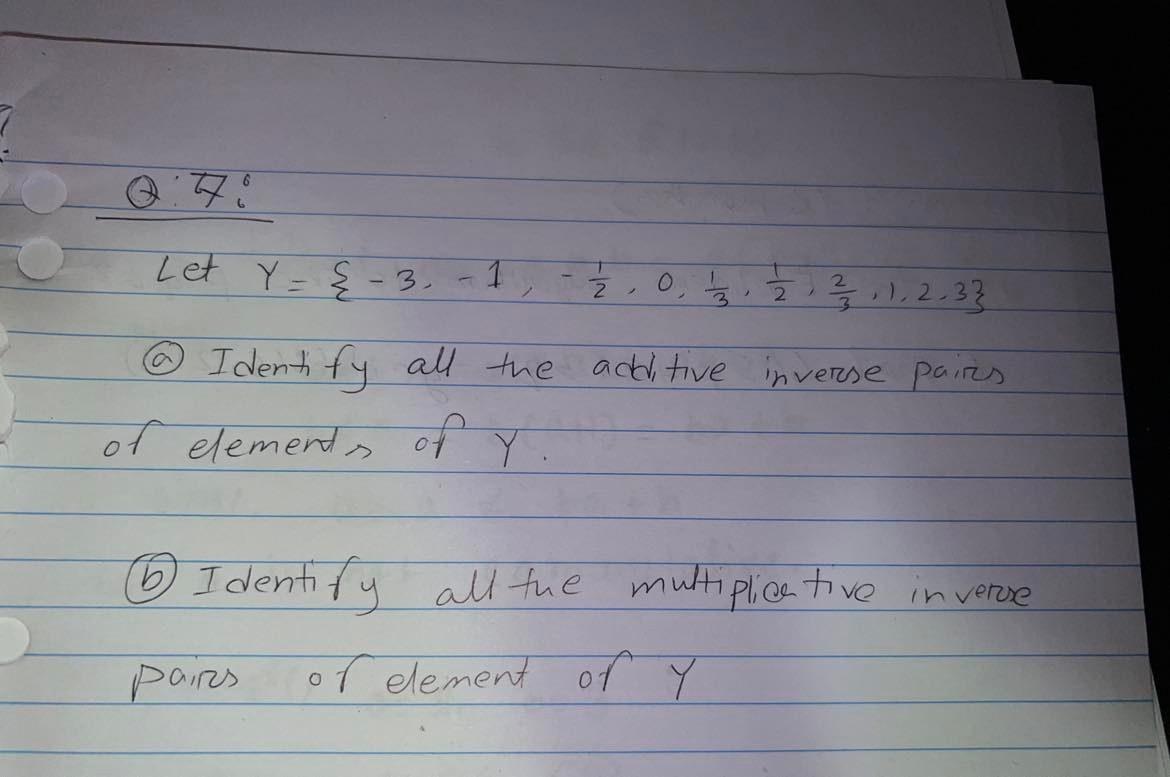 Q.7:
Let Y = { -3, -1, -1/2, 0, 1/3, 1/2, 2/3, 1, 2, 3}
(a) Identify all the additive inverse pairs
of elements of Y.
(b) Identify all the multiplicative inverse
pairs of element of Y